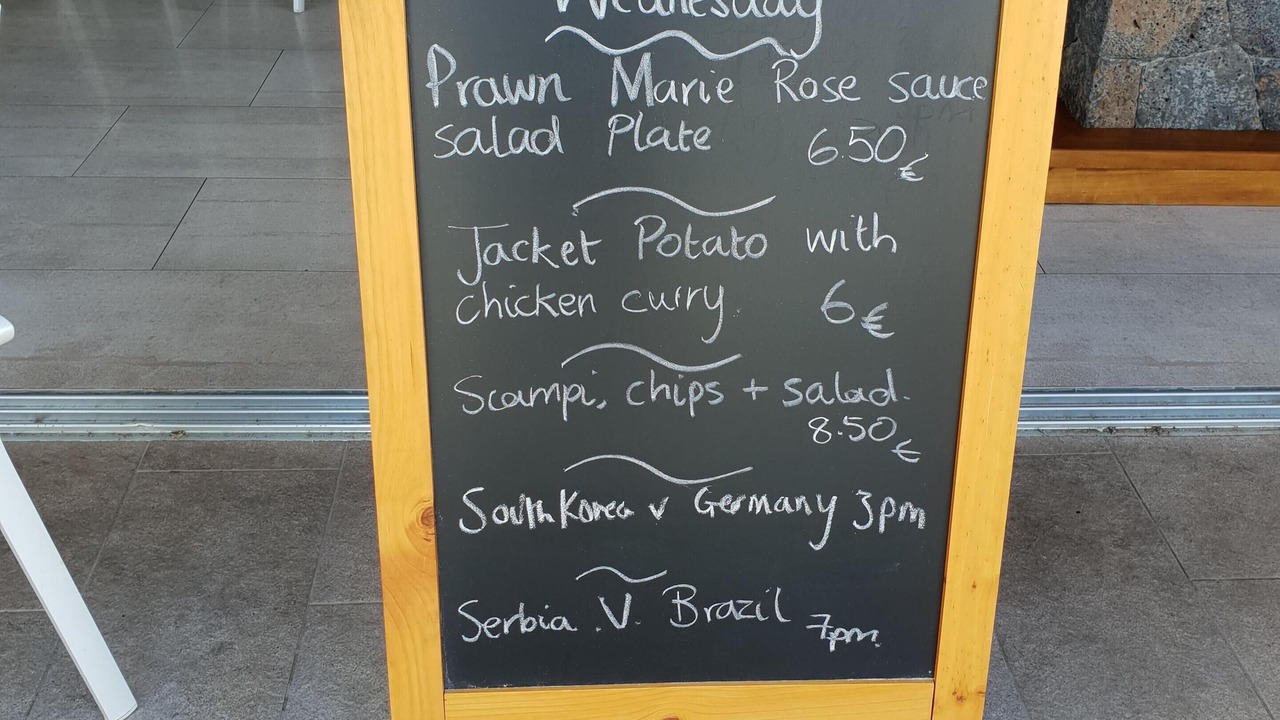 Wednesday
Prawn Marie Rose sauce
salad Plate 6.50€
Jacket Potato with
chicken curry 6€
Scampi, chips + salad.
8.50€
South Korea v Germany 3pm
Serbia .V. Brazil 7pm.